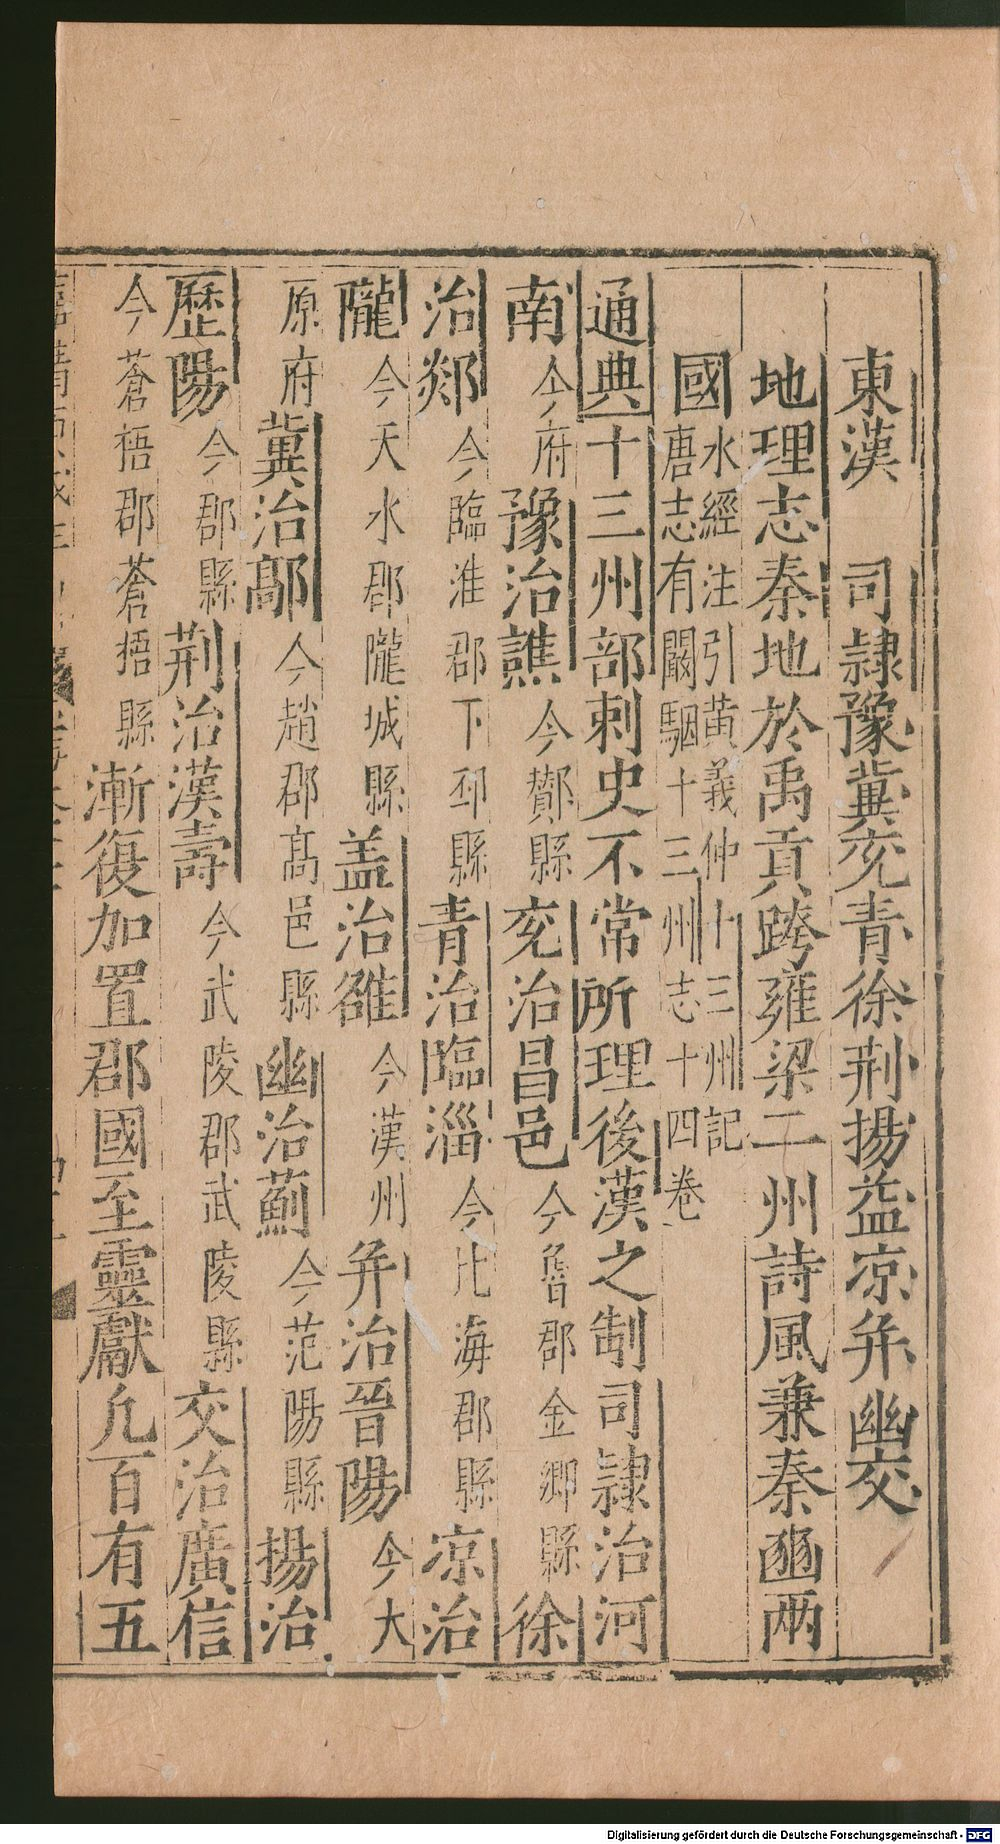 東漢　司隷豫冀兖青徐荆揚益凉并幽交
地理志秦地於禹貢跨雍梁二州詩風兼秦豳兩
國水經注引黄義仲十三州記
唐志有闞駰十三州志十四卷
通典十三州部刺史不常所理後漢之制司隷治河
南今府豫治譙今酇縣兖治昌邑今魯郡金鄉縣徐
治郯今臨淮郡下邳縣青治臨淄今北海郡縣凉治
隴今天水郡隴城縣益治雒今漢州并治晉陽今大
原府冀治鄗今趙郡髙邑縣幽治薊今范陽縣揚治
歷陽今郡縣荆治漢壽今武陵郡武陵縣交治廣信
今蒼梧郡蒼梧縣漸復加置郡國至靈獻凡百有五
Digitalisierung gefördert durch die Deutsche Forschungsgemeinschaft - DFG